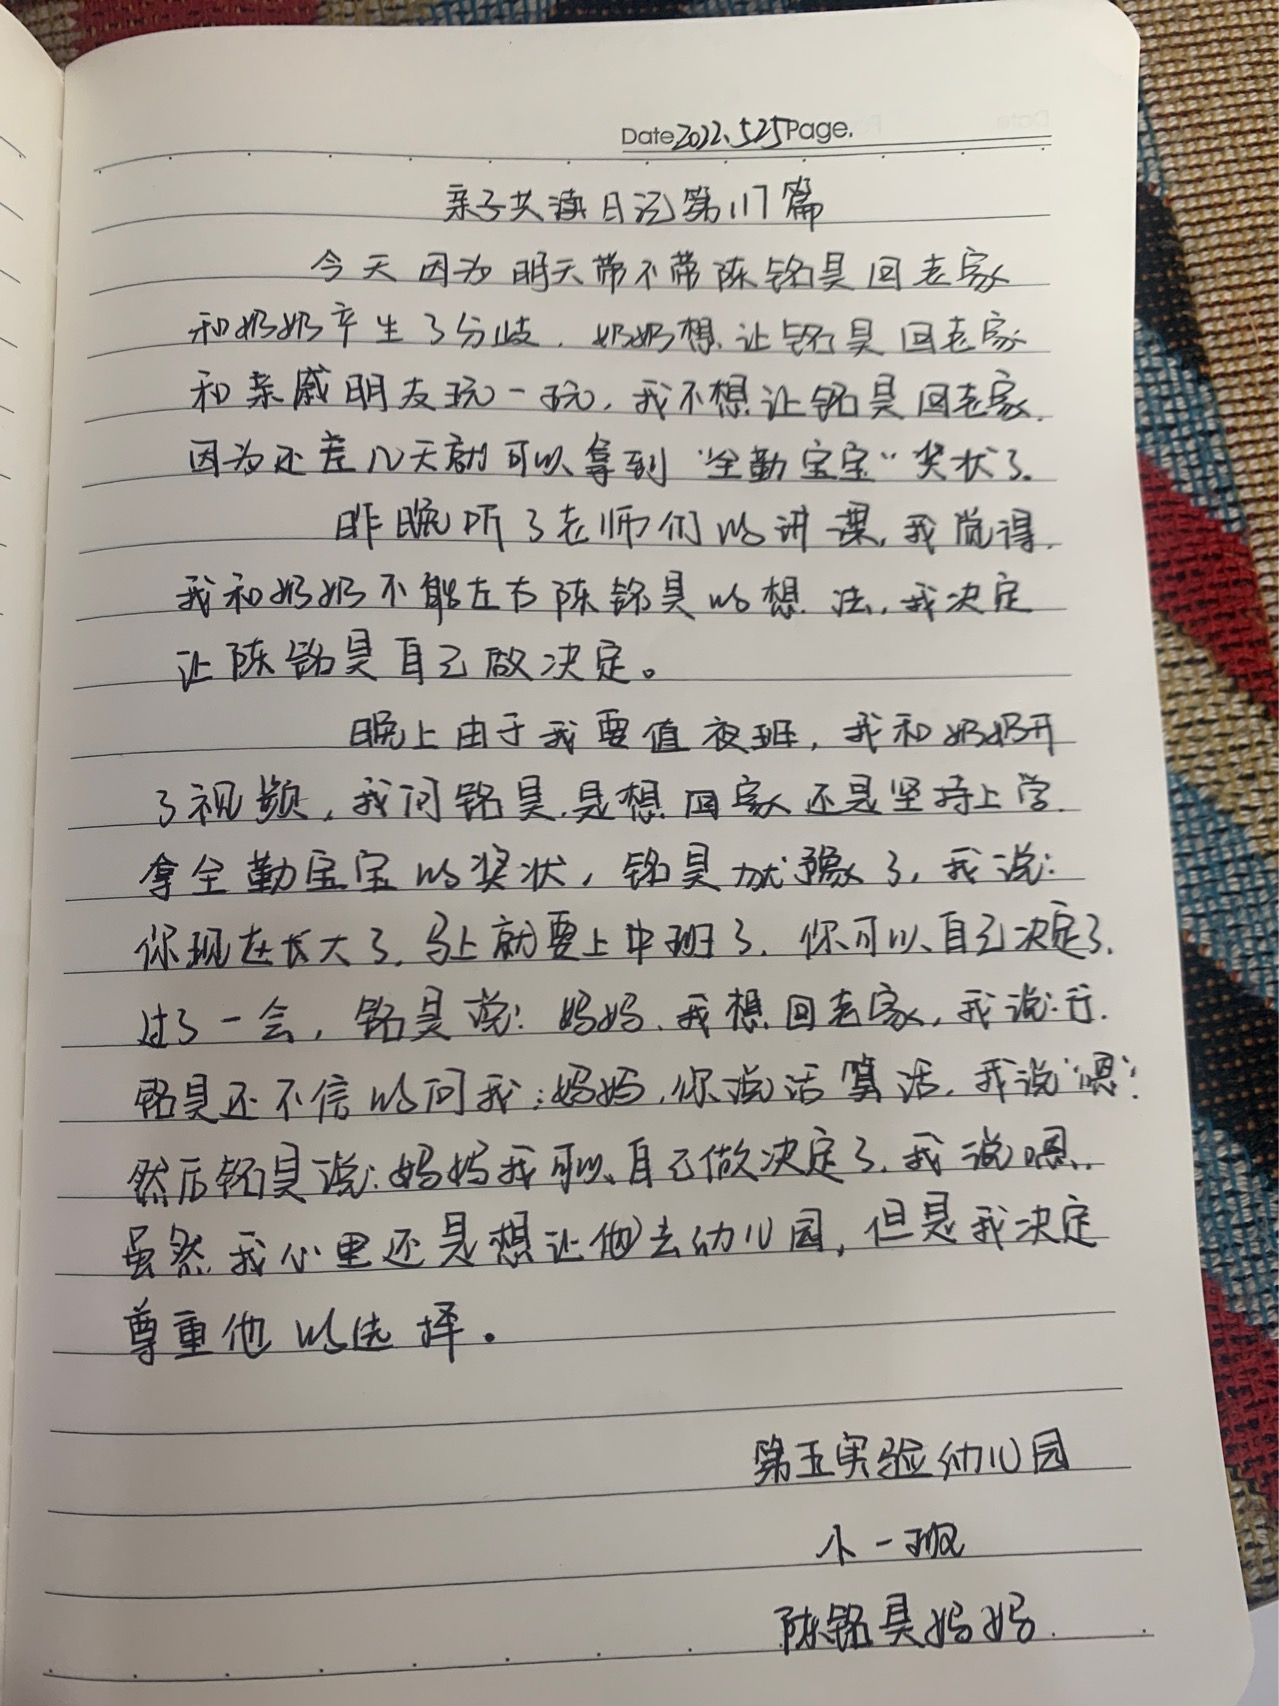 Date 2022.5.25 Page.
亲子共读日记第117篇
今天因为明天带不带陈铭昊回老家
和奶奶产生了分歧.奶奶想让铭昊回老家
和亲戚朋友玩一玩,我不想让铭昊回老家.
因为还差几天就可以拿到“全勤宝宝”奖状了.
昨晚听了老师们的讲课,我觉得.
我和奶奶不能左右陈铭昊的想法,我决定
让陈铭昊自己做决定。
晚上由于我要值夜班,我和奶奶开
了视频,我问铭昊.是想回家还是坚持上学.
拿全勤宝宝的奖状,铭昊犹豫了,我说:
你现在长大了.马上就要上中班了.你可以自己决定了.
过了一会,铭昊说:妈妈.我想回老家,我说:行.
铭昊还不信的问我:妈妈,你说话算话.我说“嗯”.
然后铭昊说:妈妈我可以自己做决定了.我说嗯..
虽然我心里还是想让他去幼儿园,但是我决定
尊重他的选择.
第五实验幼儿园
小一班
陈铭昊妈妈.